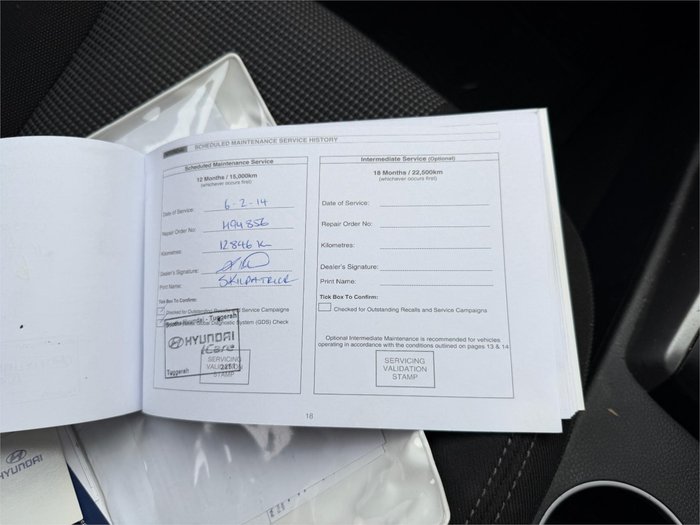 SCHEDULED MAINTENANCE SERVICE HISTORY
Scheduled Maintenance Service
12 Months / 15,000km
(whichever occurs first)
Date of Service: 6-2-14
Repair Order No: 494856
Kilometres: 12846 K
Dealer's Signature:
Print Name: S KILPATRICK
Tick Box To Confirm:
Checked for Outstanding Recalls and Service Campaigns
Global Diagnostic System (GDS) Check
- Tuggerah
HYUNDAI
iCare
SERVICING
VALIDATION
STAMP
Tuggerah
Intermediate Service (Optional)
18 Months / 22,500km
(whichever occurs first)
Date of Service:
Repair Order No:
Kilometres:
Dealer's Signature:
Print Name:
Tick Box To Confirm:
Checked for Outstanding Recalls and Service Campaigns
Optional Intermediate Maintenance is recommended for vehicles
operating in accordance with the conditions outlined on pages 13 & 14
SERVICING
VALIDATION
STAMP
18
HYUNDAI